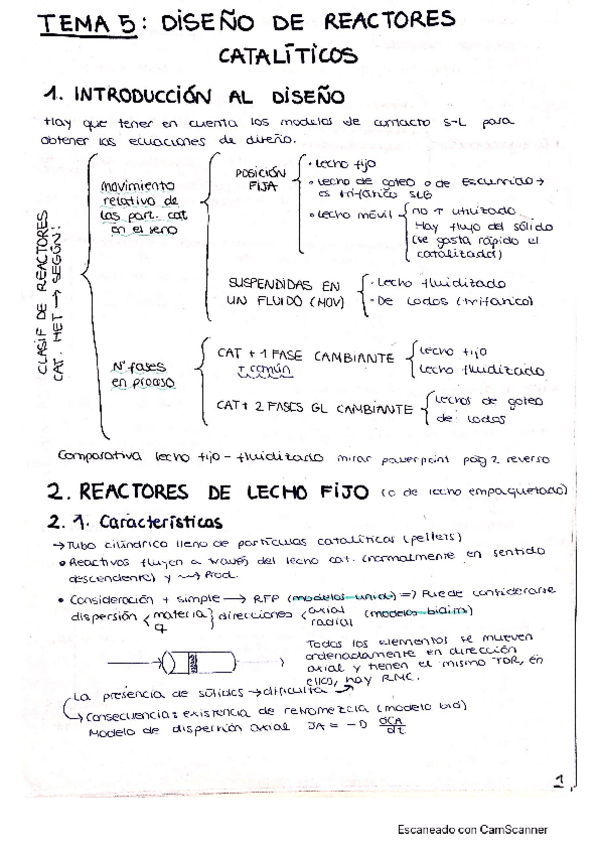 TEMA 5: DISEÑO DE REACTORES
CATALÍTICOS
1. INTRODUCCIÓN AL DISEÑO
Hay que tener en cuenta los modelos de contacto S-L para
obtener las ecuaciones de diseño.
CLASIF DE REACTORES
CAT. HET → SEGÚN:
Movimiento
relativo de
las part. cat
en el
POSICIÓN
FIJA
• Lecho fijo
• Lecho de goteo o de escurrido →
es trifásico SLG
• Lecho móvil
no ↑ utilizado
Hay flujo del sólido
(se gasta rápido el
catalizador)
SUSPENDIDAS EN
UN FLUIDO (MOV)
• Lecho fluidizado
• De lodos (trifásico)
Nº fases
en proceso
CAT + 1 FASE CAMBIANTE
↑ común
Lecho fijo
Lecho fluidizado
CAT + 2 FASES GL CAMBIANTE
Lechos de goteo
de lodos
Comparativa lecho fijo - fluidizado mirar powerpoint pág 2 reverso
2. REACTORES DE LECHO FIJO (o de lecho empaquetado)
2.1. Características
→ Tubo cilíndrico lleno de partículas catalíticas (pellets)
• Reactivos fluyen a través del lecho cat. (normalmente en sentido
descendente) y ⟿ Prod.
• Consideración + simple → RFP (modelos unid) => Puede considerarse
dispersión { materia } direcciones < axial (modelos bidim)
q radial
Todos los elementos se mueven
ordenadamente en dirección
axial y tienen el mismo TDR, en
ellos, hay RMC.
La presencia de sólidos → dificulta
↳ Consecuencia: existencia de retromezcla (modelo bid)
Modelo de dispersión axial JA = -D dCA/dz
1
Escaneado con CamScanner